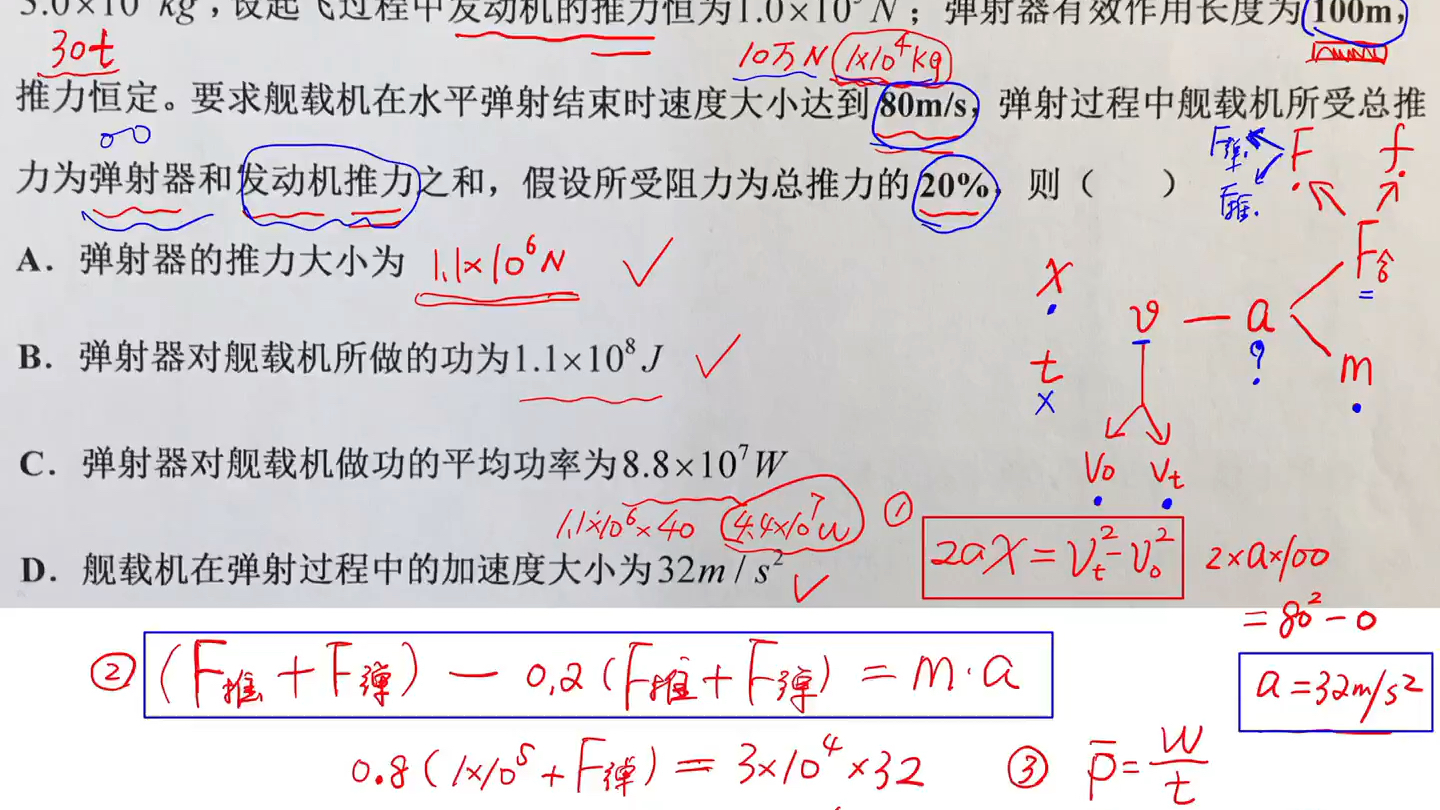 3.0×10 kg,设起飞过程中发动机的推力恒为1.0×10⁵N;弹射器有效作用长度为100m,
30t
10万N 1×10⁴kg
推力恒定。要求舰载机在水平弹射结束时速度大小达到80m/s,弹射过程中舰载机所受总推
力为弹射器和发动机推力之和,假设所受阻力为总推力的20%,则( )
F弹 F f
F推
F合
A. 弹射器的推力大小为 1.1×10⁶N ✓
x v — a
B. 弹射器对舰载机所做的功为1.1×10⁸J ✓
t × ? m
C. 弹射器对舰载机做功的平均功率为8.8×10⁷W
V₀ Vt
1.1×10⁶×40 4.4×10⁷W
① 2ax=Vt²-V₀² 2×a×100
D. 舰载机在弹射过程中的加速度大小为32m/s² ✓
=80²-0
② (F推+F弹)-0.2(F推+F弹)=m·a
a=32m/s²
0.8(1×10⁵+F弹)=3×10⁴×32
③ P̄=W/t